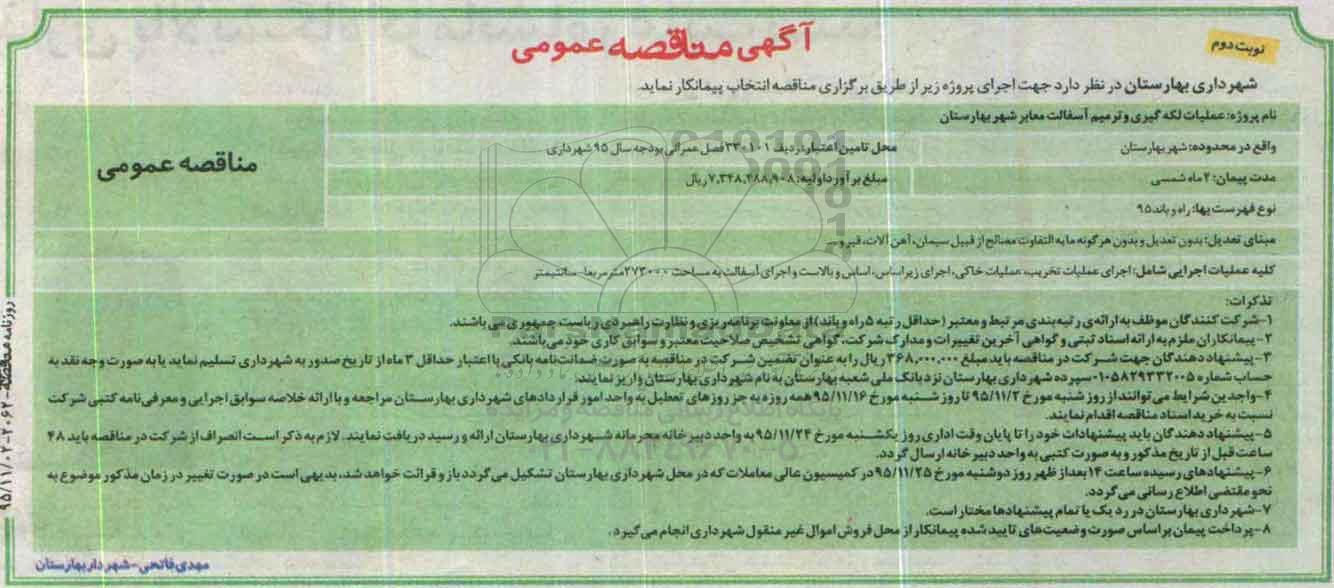 نوبت دوم
آگهی مناقصه عمومی
شهرداری بهارستان در نظر دارد جهت اجرای پروژه زیر از طریق برگزاری مناقصه انتخاب پیمانکار نماید.
مناقصه عمومی
نام پروژه: عملیات لکه گیری و ترمیم آسفالت معابر شهر بهارستان
واقع در محدوده: شهر بهارستان
محل تامین اعتبار: ردیف ۳۳۰۱۰۱ فصل عمرانی بودجه سال ۹۵ شهرداری
مدت پیمان: ۲ ماه شمسی
مبلغ برآورد اولیه: ۷,۳۴۸,۴۸۸,۹۰۸ ریال
نوع فهرست بها: راه و باند ۹۵
مبنای تعدیل: بدون تعدیل و بدون هرگونه مابه التفاوت مصالح از قبیل سیمان، آهن آلات، قیر و ...
کلیه عملیات اجرایی شامل: اجرای عملیات تخریب، عملیات خاکی، اجرای زیراساس، اساس و بالاست و اجرای آسفالت به مساحت ۲۷۳۰۰۰ مترمربع سانتیمتر
تذکرات:
۱-شرکت کنندگان موظف به ارائه‌ی رتبه‌بندی مرتبط و معتبر (حداقل رتبه ۵ راه و باند) از معاونت برنامه‌ریزی و نظارت راهبردی ریاست جمهوری می باشند.
۲-پیمانکاران ملزم به ارائه اسناد ثبتی و گواهی آخرین تغییرات و مدارک شرکت، گواهی تشخیص صلاحیت معتبر و سوابق کاری خود می‌باشند.
۳-پیشنهاد دهندگان جهت شرکت در مناقصه باید مبلغ ۳۶۸,۰۰۰,۰۰۰ ریال را به عنوان تضمین شرکت در مناقصه به صورت ضمانت‌نامه بانکی با اعتبار حداقل ۳ ماه از تاریخ صدور به شهرداری تسلیم نماید یا به صورت وجه نقد به
حساب شماره ۰۱۰۵۸۲۹۳۳۲۰۰۵ سپرده شهرداری بهارستان نزد بانک ملی شعبه بهارستان به نام شهرداری بهارستان واریز نمایند.
۴-واجدین شرایط می توانند از روز شنبه مورخ ۹۵/۱۱/۲ تا روز شنبه مورخ ۹۵/۱۱/۱۶ همه روزه به جز روزهای تعطیل به واحد امور قراردادهای شهرداری بهارستان مراجعه و با ارائه خلاصه سوابق اجرایی و معرفی‌نامه کتبی شرکت
نسبت به خرید اسناد مناقصه اقدام نمایند.
۵-پیشنهاد دهندگان باید پیشنهادات خود را تا پایان وقت اداری روز یکشنبه مورخ ۹۵/۱۱/۲۴ به واحد دبیرخانه محرمانه شهرداری بهارستان ارائه و رسید دریافت نمایند. لازم به ذکر است انصراف از شرکت در مناقصه باید ۴۸
ساعت قبل از تاریخ مذکور و به صورت کتبی به واحد دبیرخانه ارسال گردد.
۶-پیشنهادهای رسیده ساعت ۱۴ بعداز ظهر روز دوشنبه مورخ ۹۵/۱۱/۲۵ در کمیسیون عالی معاملات که در محل شهرداری بهارستان تشکیل می گردد باز و قرائت خواهد شد، بدیهی است در صورت تغییر در زمان مذکور موضوع به
نحو مقتضی اطلاع رسانی می گردد.
۷-شهرداری بهارستان در رد یک یا تمام پیشنهادها مختار است.
۸-پرداخت پیمان براساس صورت وضعیت‌های تایید شده پیمانکار از محل فروش اموال غیر منقول شهرداری انجام می گیرد.
مهدی فاتحی-شهردار بهارستان
پایگاه اطلاع رسانی مناقصه و مزایده
۰۲۱-۸۸۳۴۹۶۷۰-۵